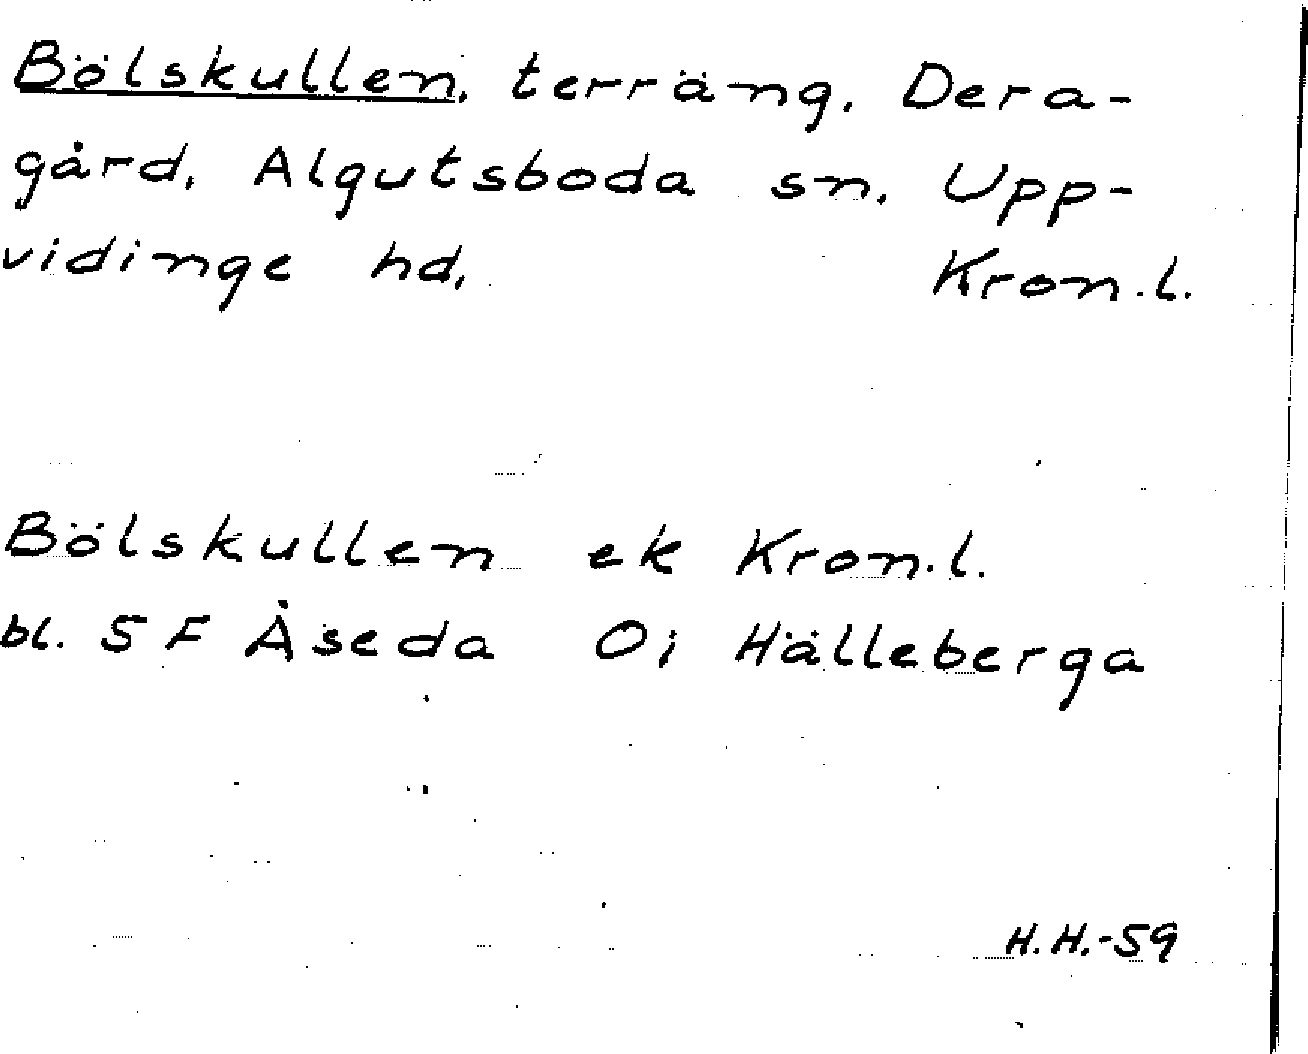 Bölskullen, terräng, Dera-
gård, Algutsboda sn, Upp-
vidinge hd, Kron.l.
Bölskullen ek Kron.l.
bl. 5 F Åseda 0i Hälleberga
H.H.-59